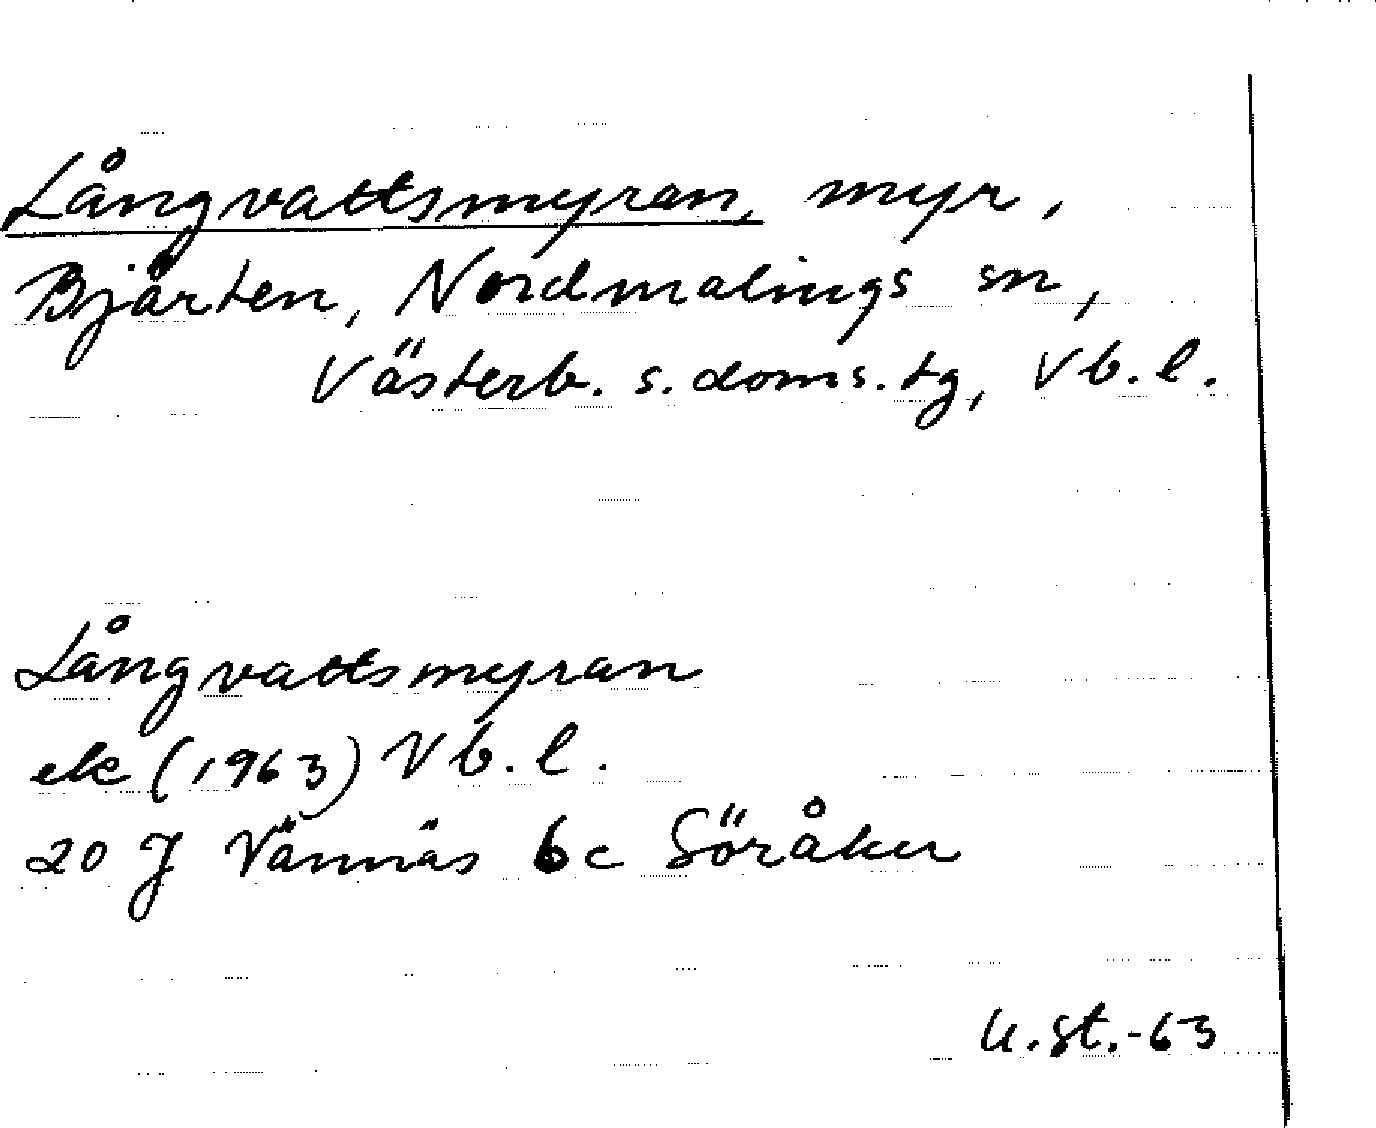 Långvattsmyran, myr,
Bjärten, Nordmalings sn,
Västerb. s. doms. tg, Vb. l.
Långvattsmyran
ek (1963) Vb. l.
20 J Vännäs 6c Söråker
U. St. -63